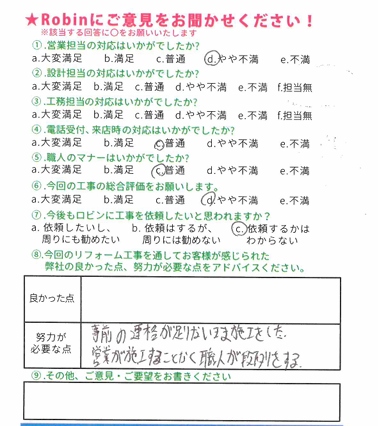 ★Robinにご意見をお聞かせください！
※該当する回答に〇をお願いいたします
①.営業担当の対応はいかがでしたか?
a.大変満足 b.満足 c.普通 d.やや不満 e.不満
②.設計担当の対応はいかがでしたか?
a.大変満足 b.満足 c.普通 d.やや不満 e.不満 f.担当無
③.工務担当の対応はいかがでしたか?
a.大変満足 b.満足 c.普通 d.やや不満 e.不満 f.担当無
④.電話受付、来店時の対応はいかがでしたか?
a.大変満足 b.満足 c.普通 d.やや不満 e.不満
⑤.職人のマナーはいかがでしたか?
a.大変満足 b.満足 c.普通 d.やや不満 e.不満
⑥.今回の工事の総合評価をお願いします。
a.大変満足 b.満足 c.普通 d.やや不満 e.不満
⑦.今後もロビンに工事を依頼したいと思われますか？
a. 依頼したいし、 b. 依頼はするが、 c. 依頼するかは
周りにも勧めたい 周りには勧めない わからない
⑧.今回のリフォーム工事を通してお客様が感じられた
弊社の良かった点、努力が必要な点をアドバイスください。
良かった点
努力が 事前の連絡が足りないまま施工をした.
必要な点 営業が施工することなく職人が段取りをする.
⑨.その他、ご意見・ご要望をお書きください